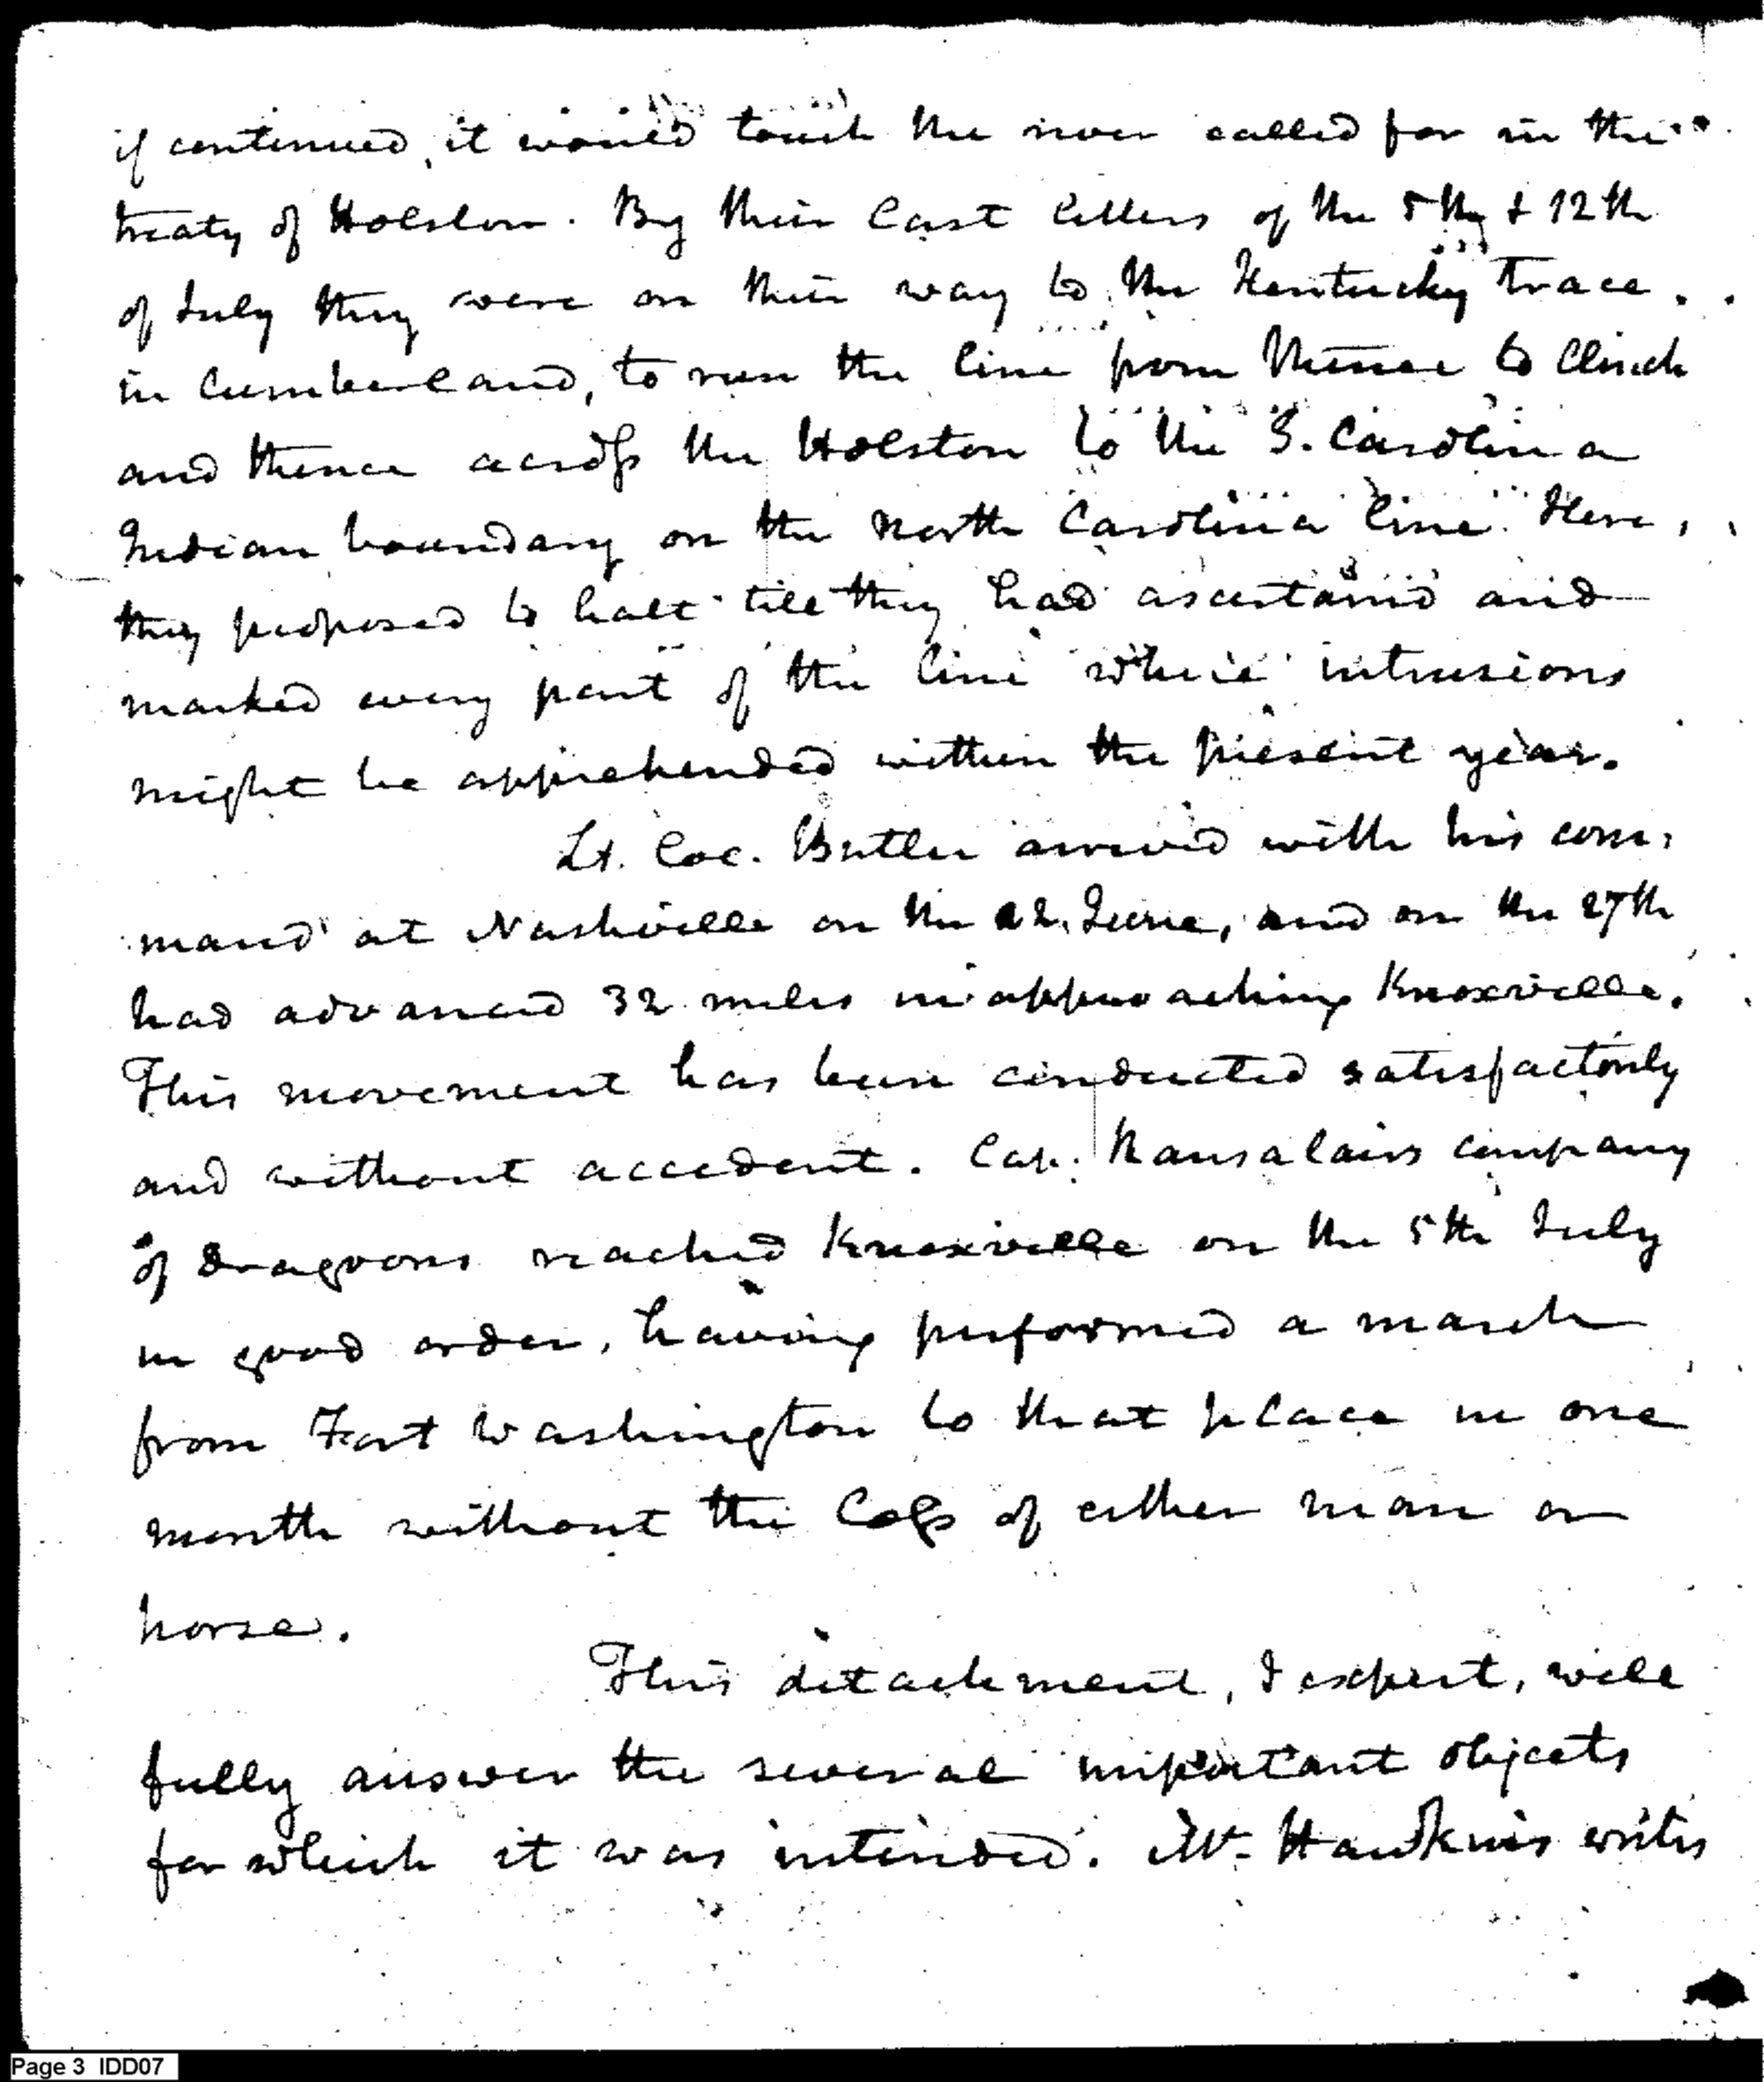 if continued, it would touch the river called for in the
treaty of Holston. By their last letters of the 5th & 12th
of July they were on their way to the Kentucky trace.
in Cumberland, to run the line from thence to Clinch
and thence across the Holston to the S. Carolina
Indian boundary on the North Carolina line. Here,
they proposed to halt till they had ascertained and
marked every part of the line where intrusions
might be apprehended within the present year.
Lt. Col. Butler arrived with his com:
mand at Nashville on the 22. June, and on the 27th
had advanced 32 miles in approaching Knoxville.
This movement has been conducted satisfactorily
and without accident. Cap. Ransalairs company
of dragoons reached Knoxville on the 5th July
in good order, having performed a march
from Fort Washington to that place in one
month without the loss of either man or
horse.
This detachment, I expect, will
fully answer the several important objects
for which it was intended. Mr. Hawkins writes
Page 3 IDD07